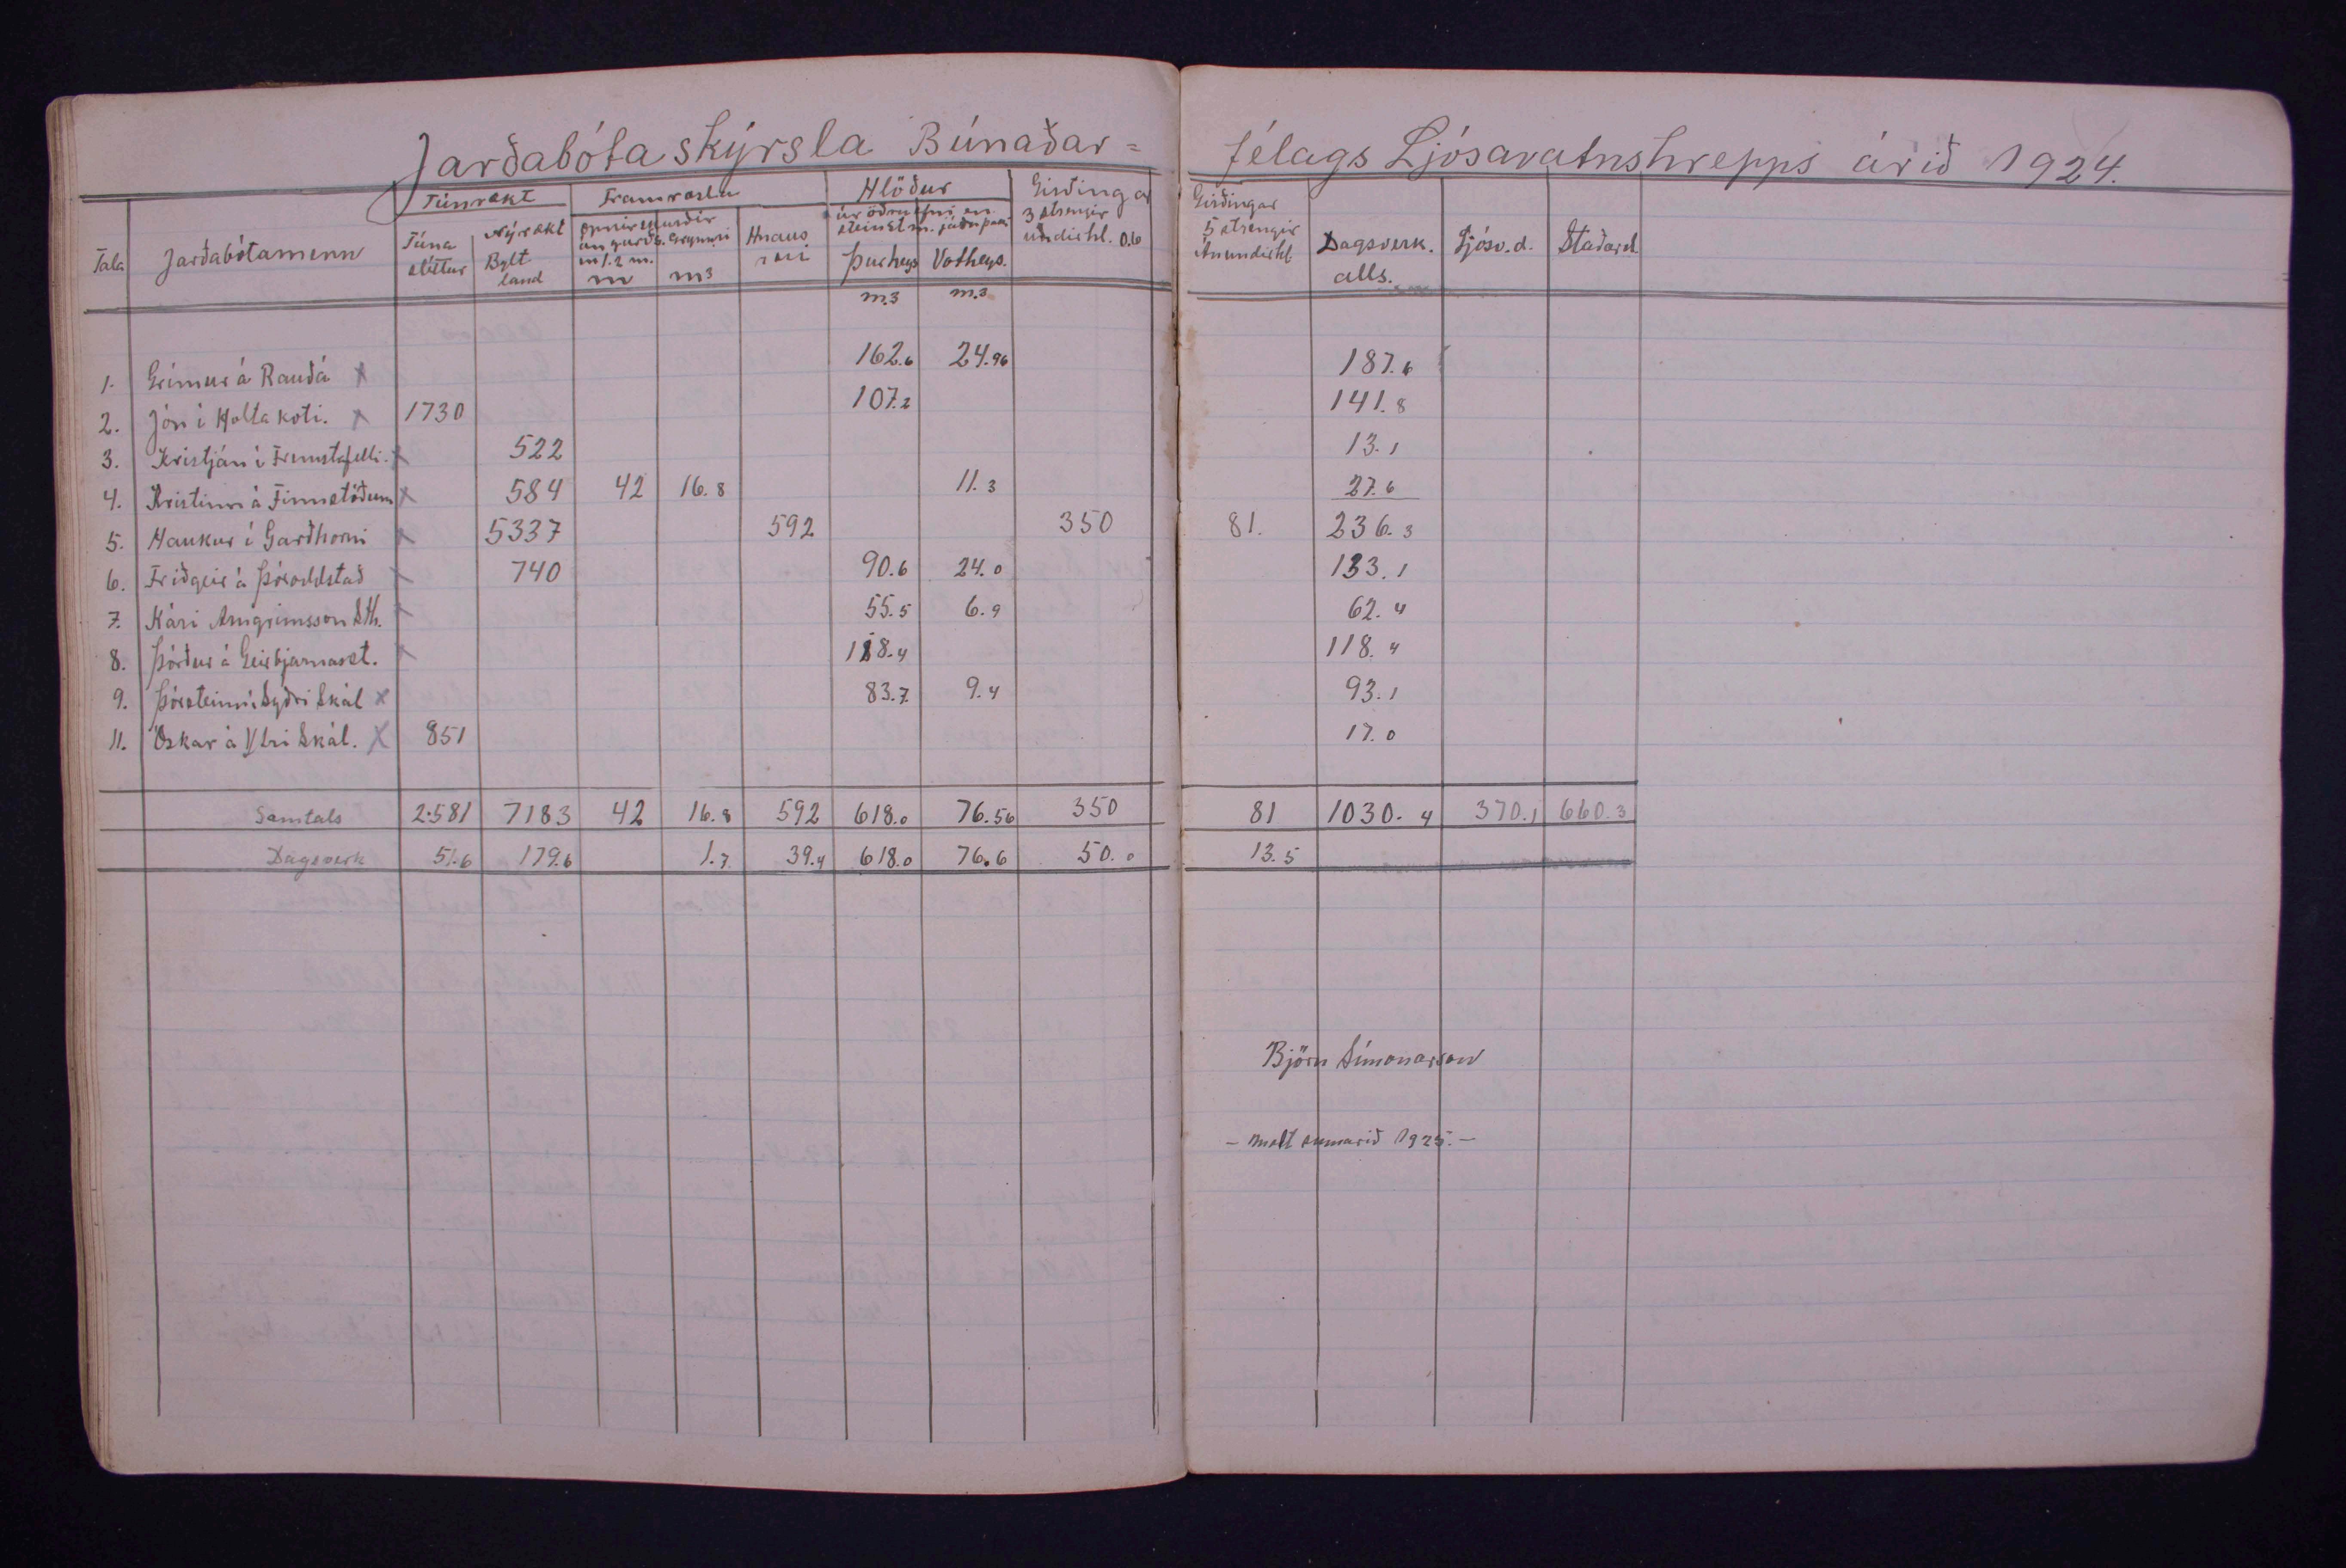 Jarðabótaskýrsla Búnaðar=
félags Ljósavatnshrepps árið 1924.
Tala Jarðabótamenn Túnrækt Framræsla Hlöður Girðingar Girðingar Dagsverk alls. Ljósv.d. Staðard.
Túna sléttur Nýrækt Bylt land m m3 Hnaus Þurheys m.3 Votheys. m.3 3 strengir undirhl. 0.6 5 strengir
1. Grímur á Rauðá x 162.6 24.96 187.6
2. Jón í Holtakoti. x 1730 107.2 141.8
3. Kristján í Fremstafelli. x 522 13.1
4. Kristinn á Finnstöðum x 584 42 16.8 11.3 27.6
5. Haukur í Garðhorni x 5337 592 350 81. 236.3
6. Friðgeir á Þóroddstað x 740 90.6 24.0 133.1
7. Kári Arngrímsson Sth. x 55.5 6.9 62.4
8. Þórður á Geirbjarnarst. x 118.4 118.4
9. Þórsteinn í Syðri Skál x 83.7 9.4 93.1
11. Óskar á Ytri Skál. x 851 17.0
Samtals 2.581 7183 42 16.8 592 618.0 76.56 350 81 1030.4 370.1 660.3
Dagsverk 51.6 179.6 1.7 39.4 618.0 76.6 50.0 13.5
Björn Símonarson
- Mælt sumarið 1925. -